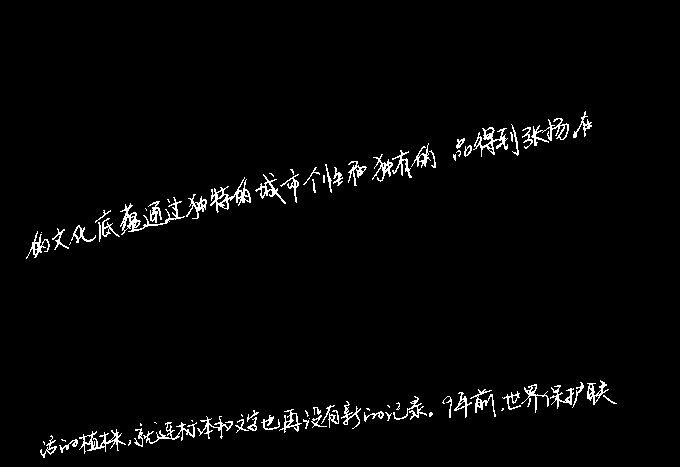 的文化底蕴通过独特的城市个性和独有的 品得到张扬。在
活的植株,就连标本和文字也再没有新的记录。9年前,世界保护联